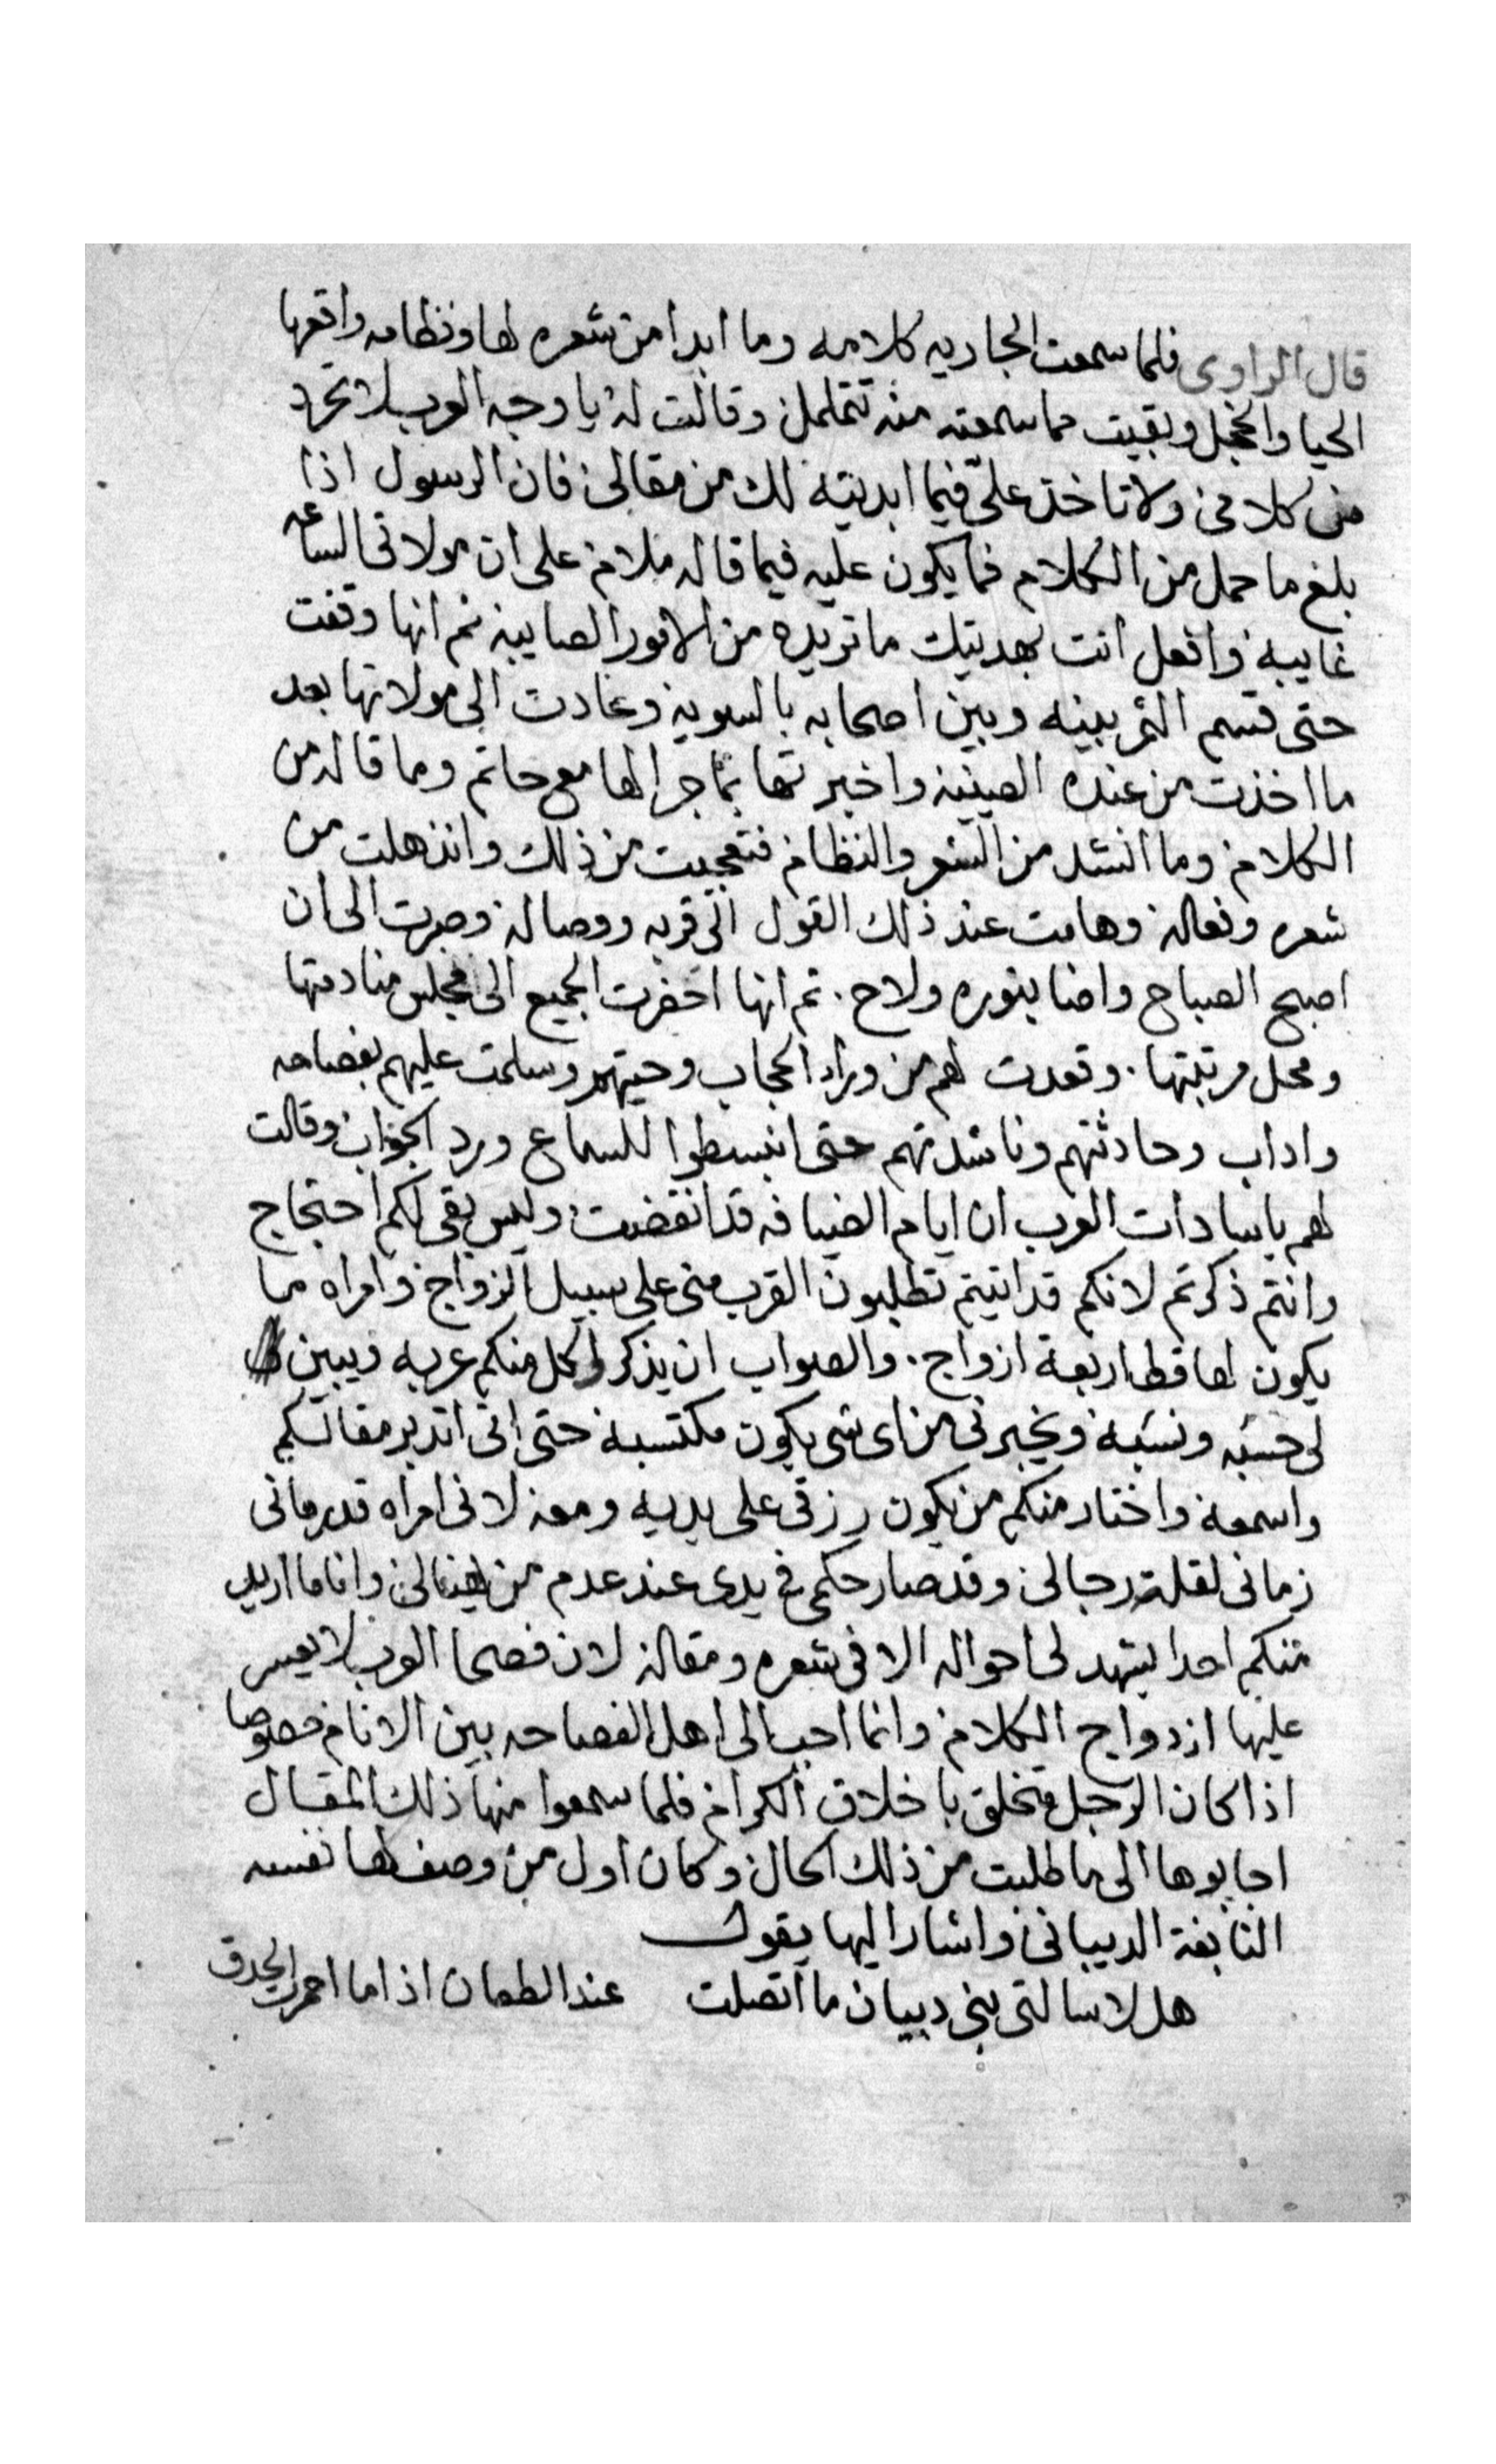 قال الراوى فلما سمعت الجاريه كلامه وما ابدا من شعره لها ونظامه واقعها
الحيا والخجل وبقيت مما سمعته منه تتململ وقالت له يا وجه العرب لا تحرد
من كلامى ولا تاخذ علىّ فيما ابديته لك من مقالى فان الرسول اذا
بلغ ما حمل من الكلام فما يكون عليه فيما قاله ملام على ان مولاتى الساعه
غايبه وافعل انت بهديتك ما تريده من الامور الصايبه ثم انها وقفت
حتى قسم الثمر بينه وبين اصحابه بالسويه وعادت الى مولاتها بعد
ما اخذت من عنده الصينيه واخبرتها بما جرا لها مع حاتم وما قاله من
الكلام وما انشد من الشعر والنظام فتعجبت من ذلك وانذهلت من
شعره وفعاله وهامت عند ذلك القول الى قربه ووصاله وصبرت الى ان
اصبح الصباح واضا بنوره ولاح . ثم انها احضرت الجميع الى مجلس منادمتها
ومحل مرتبتها . وقعدت لهم من وراء الحجاب وحيتهم وسلمت عليهم بفصاحه
واداب وحادثتهم وناشدتهم حتى انبسطوا للسماع ورد الجواب وقالت
لهم يا سادات العرب ان ايام الضيافه قد انقضت وليس بقى لكم احتجاج
وانتم ذكرتم لانكم قد اتيتم تطلبون القرب منى على سبيل الزواج وامراه ما
يكون لها قط اربعة ازواج . والصواب ان يذكر لى كل منكم عربه ويبين
لى حسبه ونسبه ويخبرنى من اى شى يكون مكتسبه حتى انى اتدبر مقالكم
واسمعه واختار منكم من يكون رزقى على يديه ومعه لانى امراه قد رمانى
زمانى لقلة رجالى وقد صار حكمى فى يدى عند عدم من وانا ما اريد
منكم احدا يشهد لى احواله الا فى شعره ومقاله لان فصحا العرب لا يعسر
عليها ازدواج الكلام وانما احب الى اهل الفصاحه بين الانام خصوصا
اذا كان الرجل متخلق باخلاق الكرام فلما سمعوا منها ذلك المقال
اجابوها الى ما طلبت من ذلك الحال وكان اول من وصف لها نفسه
النابغة الدبيانى واشار اليها يقول
هل لا سالتى بنى دبيان ما اتصلت عند الطعان اذا ما احمرت الحدق